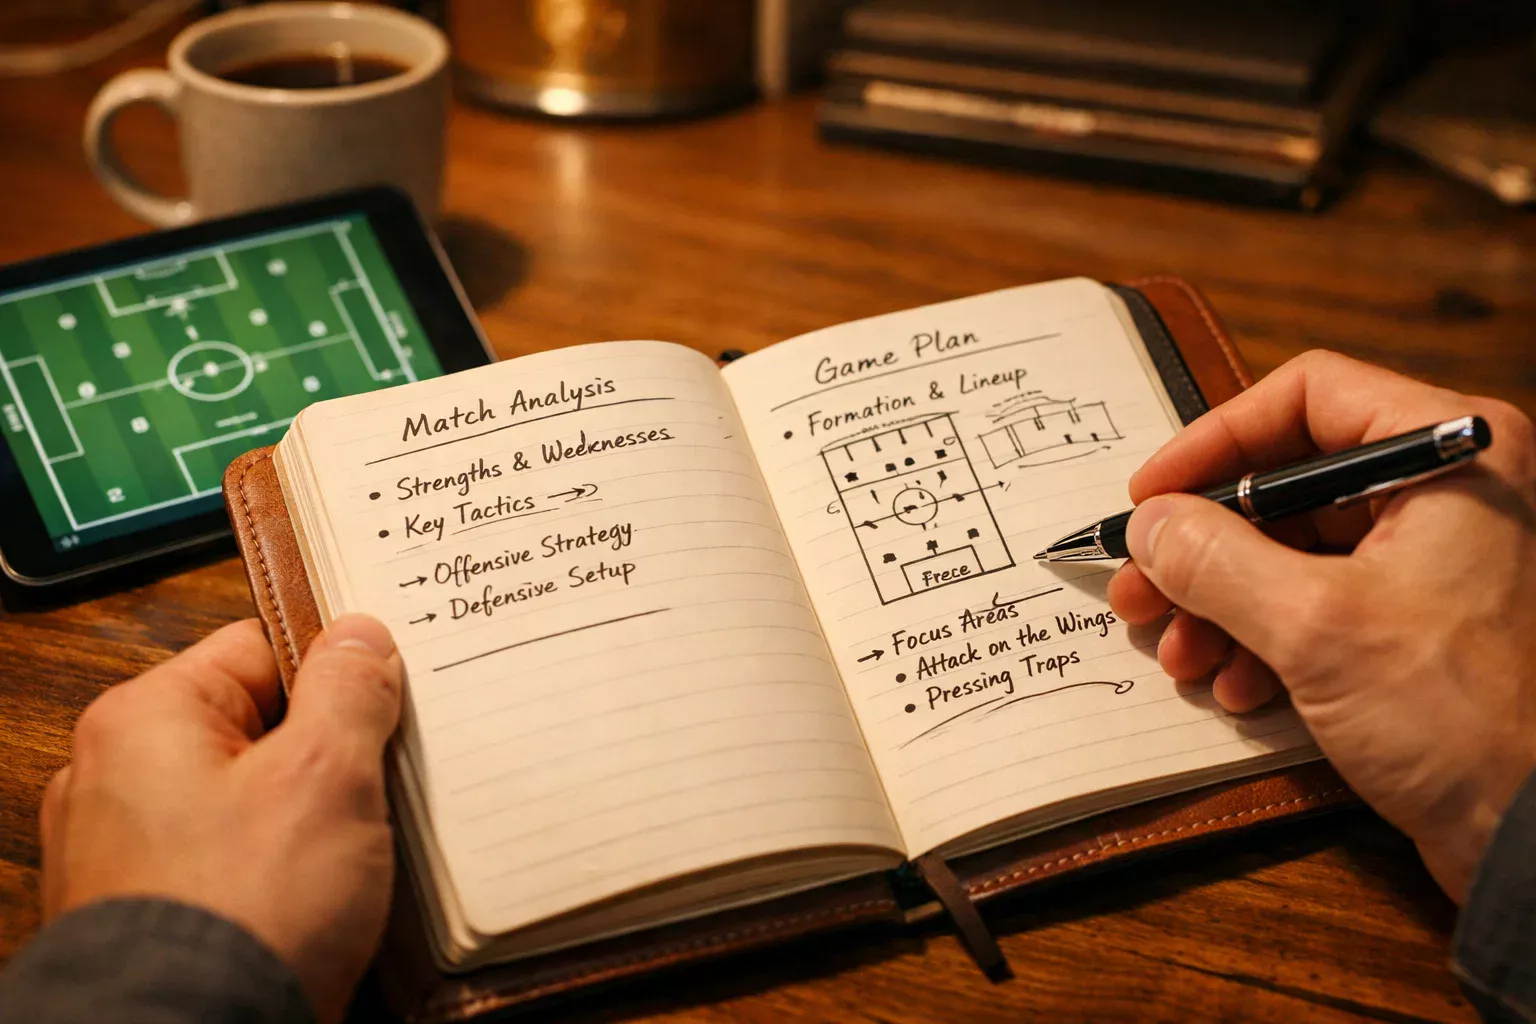 Match Analysis
• Strengths & Weeknesses
• Key Tactics →
→ Offensive Strategy
→ Defensive Setup
Game Plan
• Formation & Lineup
Frece
→ Focus Areas
• Attack on the Wings
• Pressing Traps